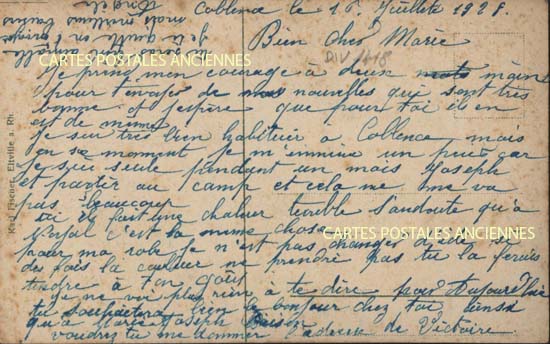 Coblence le 16 Juillete 1928.
Bien cher Marie
DIV 1418
Je prend mon courage à deux mains
pour t'envoyer de nos nouvelles qui sont très
bonne et j'espère que pour toi il en
est de même
Je sui très bien habituér a Coblence mais
en se moment je m'ennuie un puis car
je sui seule pendant un mois Joseph
et partir au camp et cela me me va
pas beaucoup
ici il fait une chaleur terrible s'andoute qu'à
c'est la meme chose
pour ma robe je n'est pas changer d'idée si
des fois la couleur ne prendre pas tu la ferais
teindre à ton goût
Je ne voi plus rien à te dire pour Aujourd'hui
tu souhaitera bien le bonjour chez toi ainsi
qu'a Marie Joseph
voudrez tu me donner l'adresse de Victoire
je te quitte en
mais meilleurs baisers
Angèle
Karl Fischer, Eltville a. Rh.
CARTES POSTALES ANCIENNES
CARTES POSTALES ANCIENNES